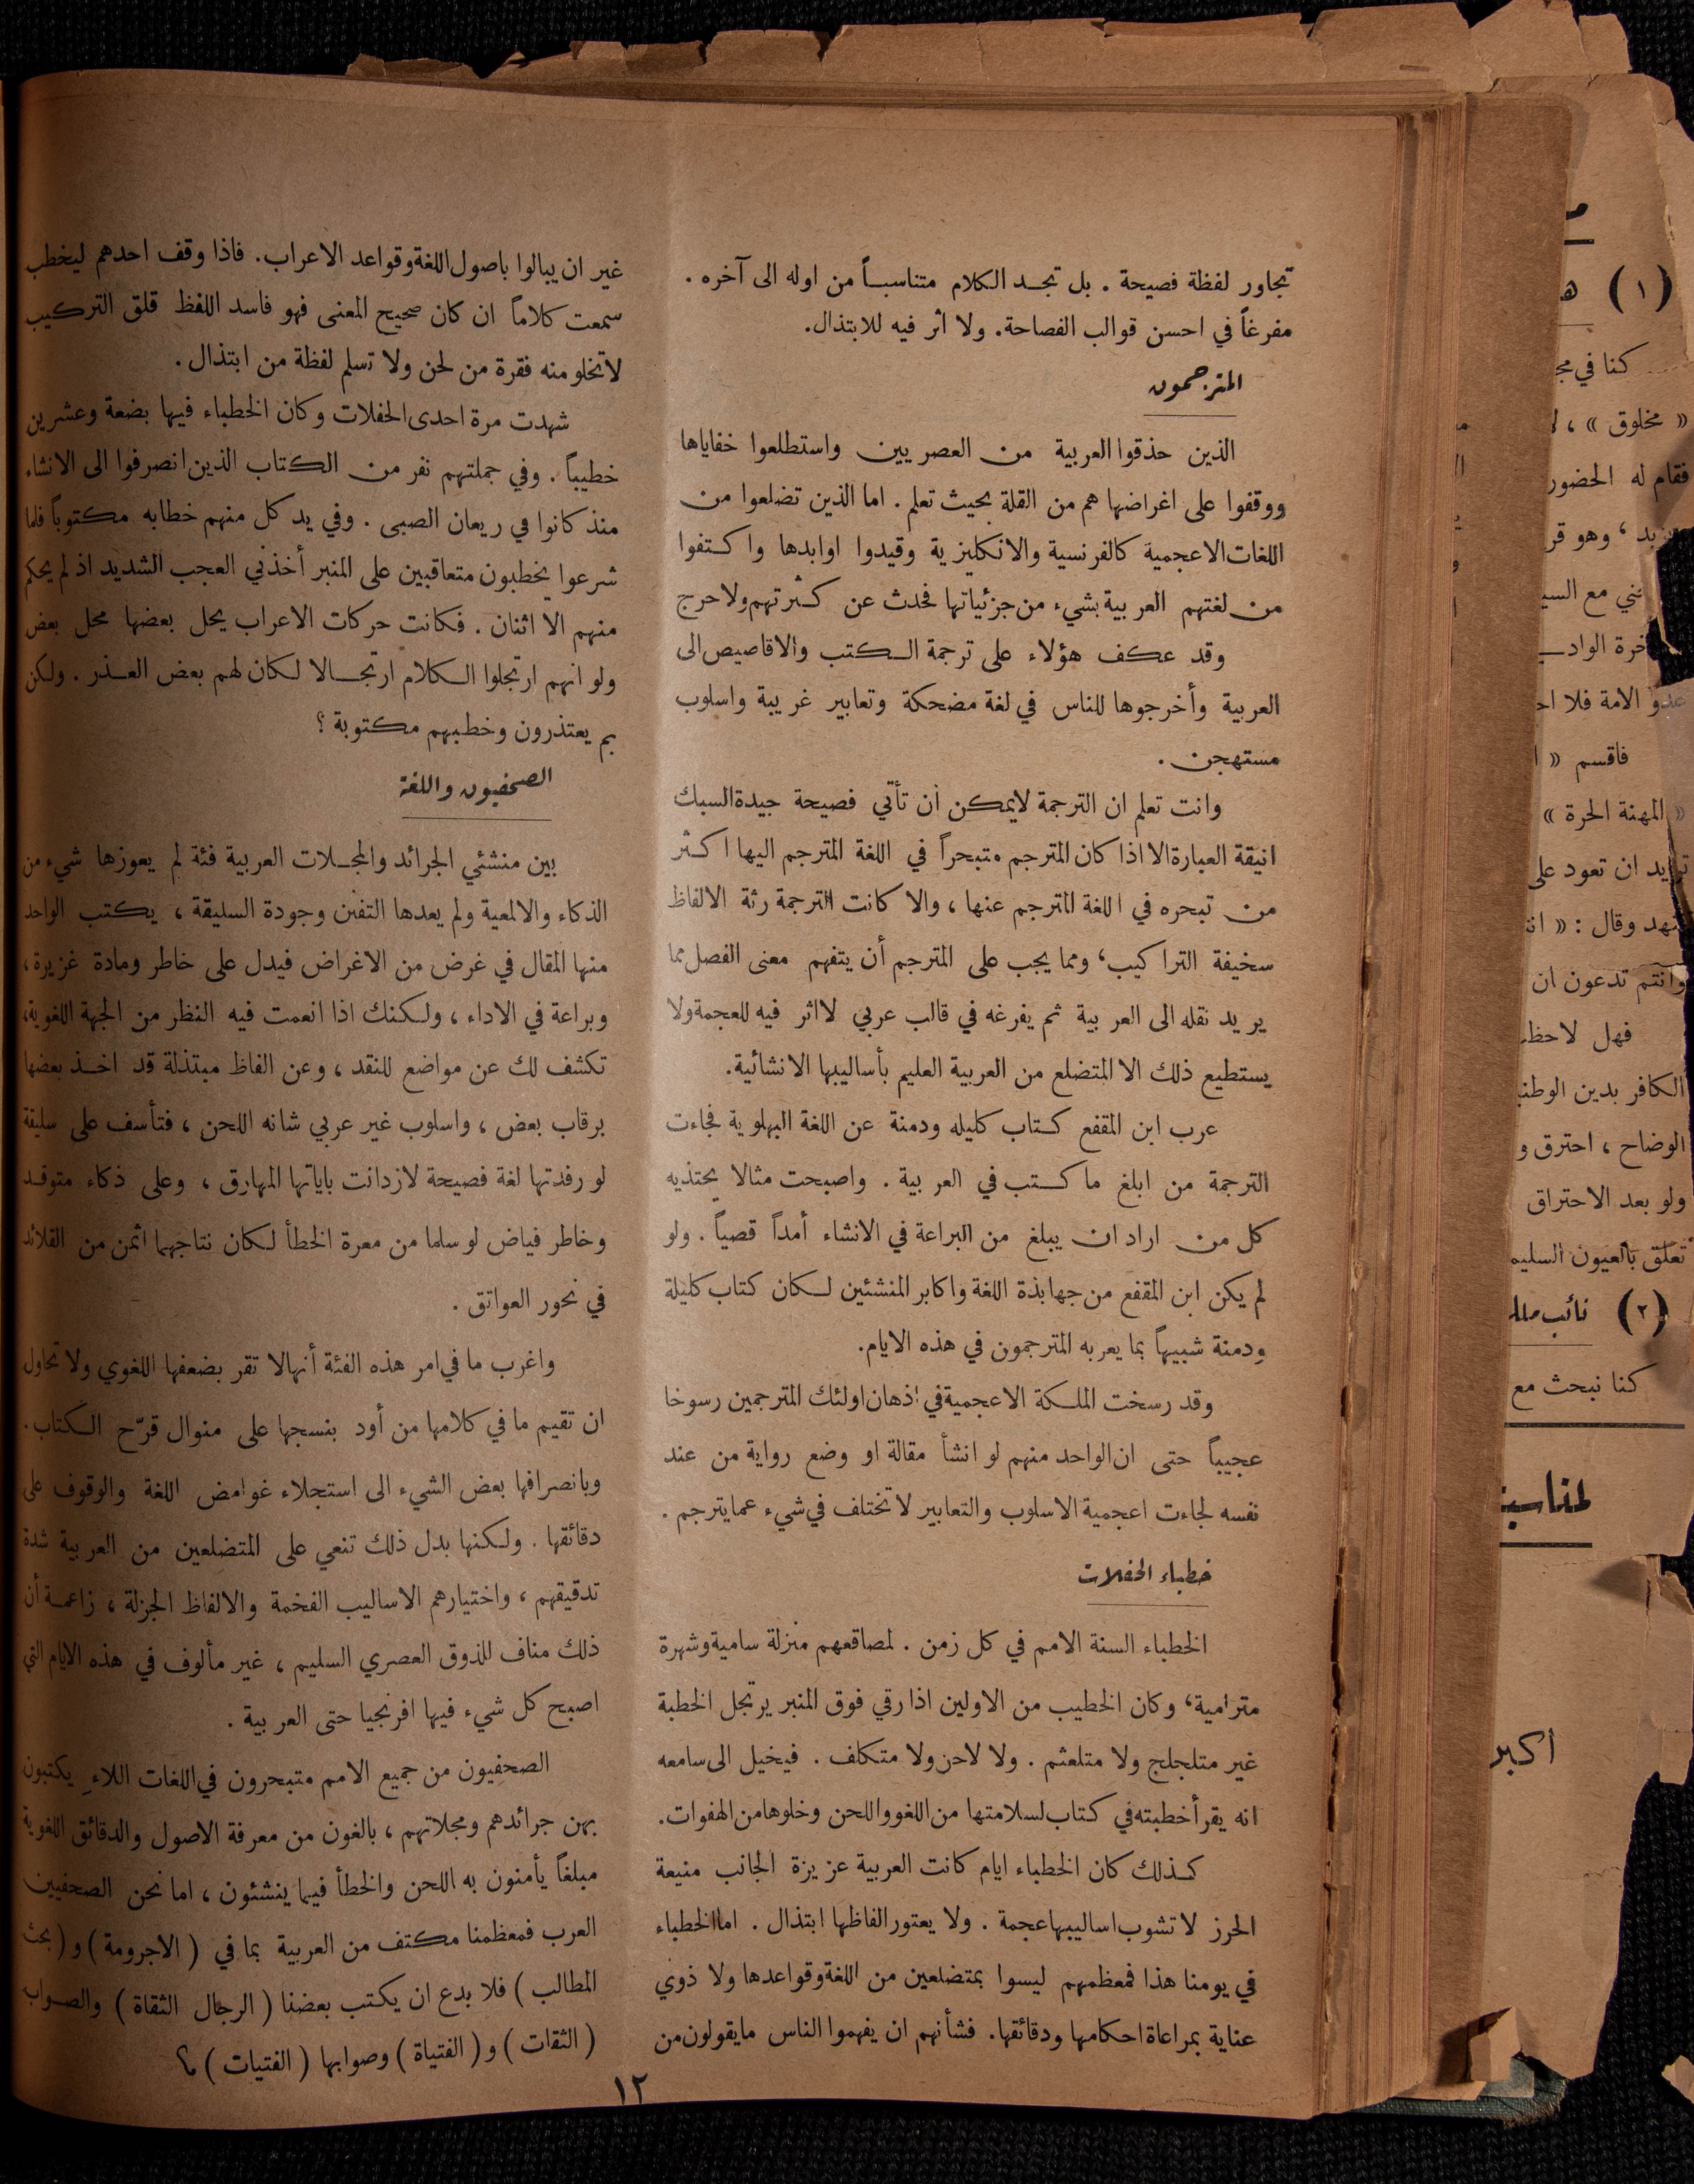 تجاور لفظة فصيحة . بل تجد الكلام متناسباً من اوله الى آخره .
مفرغاً في احسن قوالب الفصاحة. ولا اثر فيه للابتذال.
المترجمون
الذين حذقوا العربية من العصريين واستطلعوا خفاياها
ووقفوا على اغراضها هم من القلة بحيث تعلم . اما الذين تضلعوا من
اللغات الاعجمية كالفرنسية والانكليزية وقيدوا اوابدها واكتفوا
من لغتهم العربية بشيء من جزئياتها فحدث عن كثرتهم ولا حرج
وقد عكف هؤلاء على ترجمة الكتب والاقاصيص الى
العربية وأخرجوها للناس في لغة مضحكة وتعابير غريبة واسلوب
مستهجن .
وانت تعلم ان الترجمة لا يمكن أن تأتي فصيحة جيدة السبك
انيقة العبارة الا اذا كان المترجم متبحراً في اللغة المترجم اليها اكثر
من تبحره في اللغة المترجم عنها ، والا كانت الترجمة رثة الالفاظ
سخيفة التراكيب، ومما يجب على المترجم أن يتفهم معنى الفصل مما
يريد نقله الى العربية ثم يفرغه في قالب عربي لا اثر فيه للعجمة ولا
يستطيع ذلك الا المتضلع من العربية العليم بأساليبها الانشائية.
عرب ابن المقفع كتاب كليله ودمنة عن اللغة البهلوية فجاءت
الترجمة من ابلغ ما كتب في العربية . واصبحت مثالا يحتذيه
كل من اراد ان يبلغ من البراعة في الانشاء أمداً قصياً . ولو
لم يكن ابن المقفع من جهابذة اللغة واكابر المنشئين لكان كتاب كليلة
ودمنة شبيهاً بما يعربه المترجمون في هذه الايام.
وقد رسخت الملكة الاعجمية في اذهان اولئك المترجمين رسوخا
عجيباً حتى ان الواحد منهم لو انشأ مقالة او وضع رواية من عند
نفسه لجاءت اعجمية الاسلوب والتعابير لا تختلف في شيء عما يترجم .
خطباء الحفلات
الخطباء السنة الامم في كل زمن . لمصاقعهم منزلة سامية وشهرة
مترامية، وكان الخطيب من الاولين اذا رقي فوق المنبر يرتجل الخطبة
غير متلجلج ولا متلعثم . ولا لاحن ولا متكلف . فيخيل الى سامعه
انه يقرأ خطبته في كتاب لسلامتها من اللغو واللحن وخلوها من الهفوات.
كذلك كان الخطباء ايام كانت العربية عزيزة الجانب منيعة
الحرز لا تشوب اساليبها عجمة . ولا يعتور الفاظها ابتذال . اما الخطباء
في يومنا هذا فمعظمهم ليسوا بمتضلعين من اللغة وقواعدها ولا ذوي
عناية بمراعاة احكامها ودقائقها. فشأنهم ان يفهموا الناس ما يقولون من
غير ان يبالوا باصول اللغة وقواعد الاعراب. فاذا وقف احدهم ليخطب
سمعت كلاماً ان كان صحيح المعنى فهو فاسد اللفظ قلق التركيب
لا تخلو منه فقرة من لحن ولا تسلم لفظة من ابتذال .
شهدت مرة احدى الحفلات وكان الخطباء فيها بضعة وعشرين
خطيباً . وفي جملتهم نفر من الكتاب الذين انصرفوا الى الانشاء
منذ كانوا في ريعان الصبى . وفي يد كل منهم خطابه مكتوباً فلما
شرعوا يخطبون متعاقبين على المنبر أخذني العجب الشديد اذ لم يحكم
منهم الا اثنان . فكانت حركات الاعراب يحل بعضها محل بعض
ولو انهم ارتجلوا الكلام ارتجالا لكان لهم بعض العذر . ولكن
بم يعتذرون وخطبهم مكتوبة ؟
الصحفيون واللغة
بين منشئي الجرائد والمجلات العربية فئة لم يعوزها شيء من
الذكاء والالمعية ولم يعدها التفنن وجودة السليقة ، يكتب الواحد
منها المقال في غرض من الاغراض فيدل على خاطر ومادة غزيرة،
وبراعة في الاداء ، ولكنك اذا انعمت فيه النظر من الجهة اللغوية،
تكشف لك عن مواضع للنقد ، وعن الفاظ مبتذلة قد اخذ بعضها
برقاب بعض ، واسلوب غير عربي شانه اللحن ، فتأسف على سليقة
لو رفدتها لغة فصيحة لازدانت باياتها المهارق ، وعلى ذكاء متوقد
وخاطر فياض لو سلما من معرة الخطأ لكان نتاجهما اثمن من القلائد
في نحور العواتق .
واغرب ما في امر هذه الفئة أنها لا تقر بضعفها اللغوي ولا تحاول
ان تقيم ما في كلامها من أود بنسجها على منوال قرّح الكتاب.
وبانصرافها بعض الشيء الى استجلاء غوامض اللغة والوقوف على
دقائقها . ولكنها بدل ذلك تنعي على المتضلعين من العربية شدة
تدقيقهم ، واختيارهم الاساليب الفخمة والالفاظ الجزلة ، زاعمة أن
ذلك مناف للذوق العصري السليم ، غير مألوف في هذه الايام التي
اصبح كل شيء فيها افرنجيا حتى العربية .
الصحفيون من جميع الامم متبحرون في اللغات اللاءِ يكتبون
بهن جرائدهم ومجلاتهم ، بالغون من معرفة الاصول والدقائق اللغوية
مبلغاً يأمنون به اللحن والخطأ فيما ينشئون ، اما نحن الصحفيين
العرب فمعظمنا مكتف من العربية بما في ( الاجرومة ) و ( بحث
المطالب ) فلا بدع ان يكتب بعضنا ( الرجال الثقاة ) والصواب
( الثقات ) و ( الفتياة ) وصوابها ( الفتيات ) ؟
١٢
( ١ )
كنا في
« مخلوق » ،
فقام له الحضور
، وهو
مع
عدو الامة فلا
فاقسم «
« المهنة الحرة »
ان تعود على
وقال : «
وانتم تدعون ان
فهل
الكافر بدين
الوضاح ، احترق
ولو بعد الاحتراق
تعلق بالعيون
( ٢ ) نائب
كنا نبحث مع
اكبر